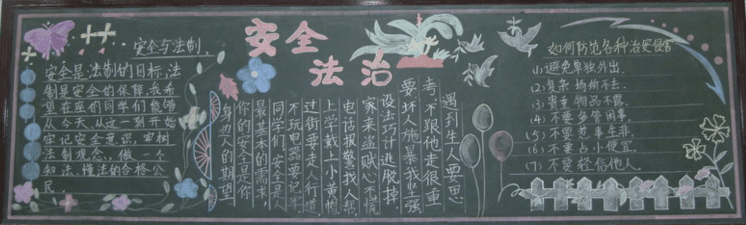 安全与法制
安全是法制的目标,法
制是安全的保障,我希
望在座的同学们能够
从今天,从这一刻开始
牢记安全意识,牢树
法制观念,做一个
知法、懂法的合格公
民。
安全
法治
遇到生人要思
考,不跟他走很重
要,坏人施暴我坚强
设法巧计逃脱掉,
家来盗贼心不慌
电话报警找人帮,
上学戴上小黄帽
过街要走人行道,
不玩电器要记牢
同学们,安全是人
最基本的需求,
你的安全是你
身边人的期望
如何防范各种治安侵害
(1)避免单独外出.
(2)复杂场所不去.
(3)贵重物品不露.
(4)不要多管闲事.
(5)不要惹事生非.
(6)不要占小便宜.
(7)不要轻信他人.